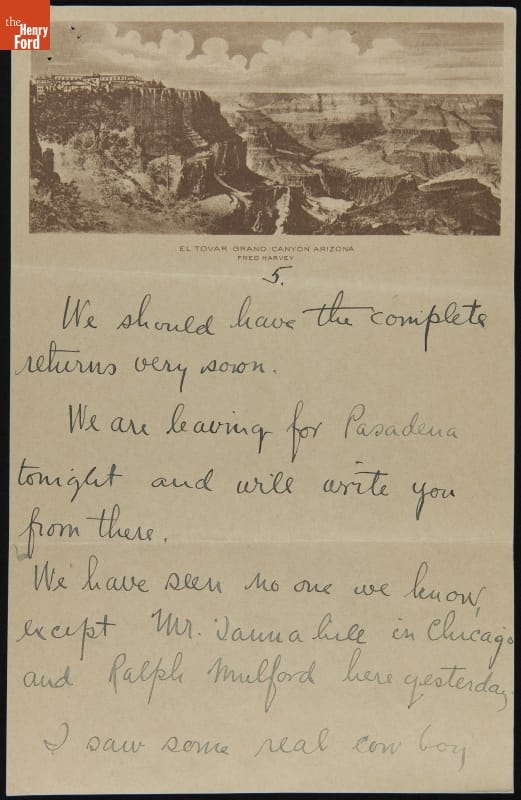 the
Henry
Ford
EL TOVAR GRAND CANYON ARIZONA
FRED HARVEY
5.
We should have the complete
returns very soon.
We are leaving for Pasadena
tonight and will write you
from there.
We have seen no one we know,
except Mr. in Chicago
and Ralph Mulford here yesterday.
I saw some real cow boy